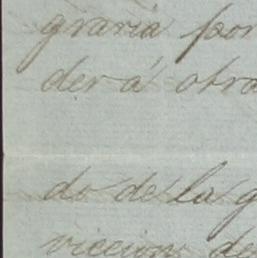 graria por
derá obra
do de la g
vicción de